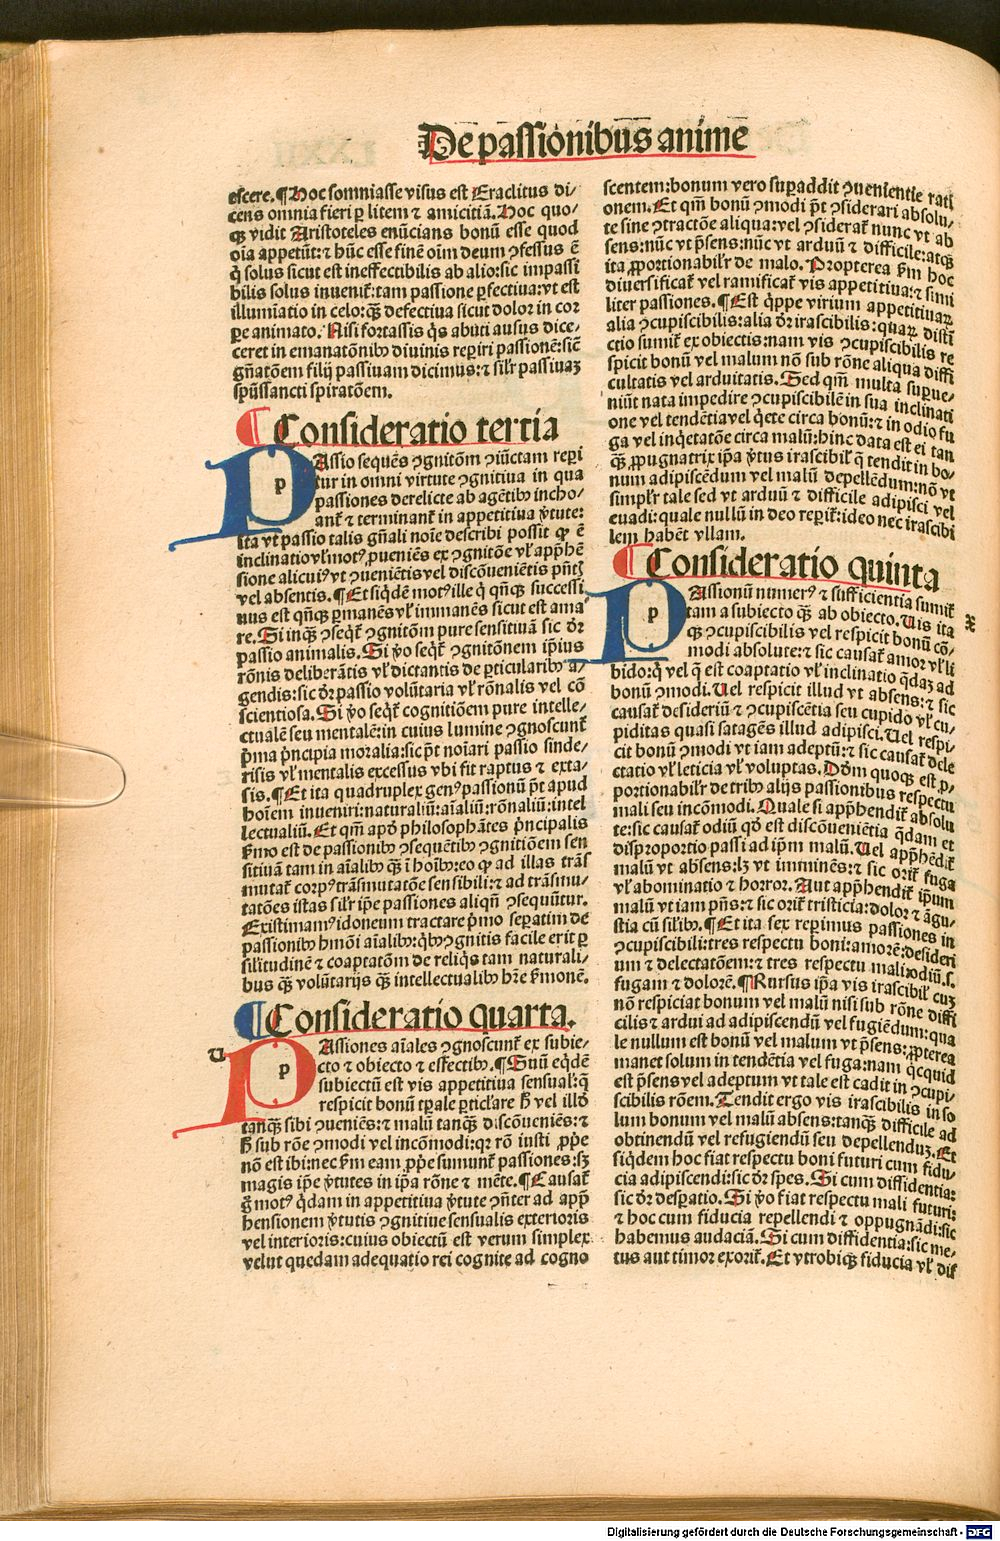 De passionibus anime
escere. ¶ Hoc somniasse visus est Eraclitus di/
cens omnia fieri ꝑ litem ⁊ amicitiā. Hoc quo/
qꝫ vidit Aristoteles enūcians bonū esse quod
oīa appetūt: ⁊ hūc esse finē oīm deum ꝯfessus ē
q̇ solus sicut est ineffectibilis ab alio: sic impassi
bilis solus inuenit᷑: tam passione ꝑfectiua: vt est
illumīatio in celo: qꝫ defectiua sicut dolor in cor
ꝑe animato. Nisi fortassis q̇s abuti ausus dice/
ceret in emanatōnibꝰ diuinis reꝑiri passionē: sic̄
gn̄atōem filij passiuam dicimus: ⁊ silr̄ passiuaꝫ
spūssancti spiratōem.
¶ Consideratio tertia
P Assio sequēs ꝯgnitōm ꝯiūctam reꝑi
p
tur in omni virtute ꝯgnitiua in qua
passiones derelicte ab agētibꝰ incho/
ant᷑ ⁊ terminant᷑ in appetitiua v̇tute:
ita vt passio talis gn̄ali noīe describi possit ꝙ ē
inclinatio vl̓ motꝰ ꝓueniēs ex ꝯgnitōe vl̓ app̄hē
sione alicuiꝰ vt ꝯueniētis vel discōuenientis pn̄tꝭ
vel absentis. ¶ Et siq̇dē motꝰ ille q̇ qn̄qꝫ successi
uus est qn̄qꝫ ꝑmanēs vl̓ immanēs sicut est ama/
re. Si inqꝫ ꝯseqt᷑ ꝯgnitōm pure sensitiuā sic dr̄
passio animalis. Si v̇o seqt᷑ ꝯgnitōnem ip̄ius
rōnis deliberātis vl̓ dictantis de ꝑticularibꝰ a/
gendis: sic dr̄ passio volūtaria vl̓ rōnalis vel cō
scientiosa. Si v̇o seqt᷑ cognitiōem pure intelle/
ctualē seu mentalē: in cuius lumine ꝯgnoscunt᷑
p̄ma p̄ncipia moralia: sic pt̄ noīari passio sinde/
risis vl̓ mentalis excessus vbi fit raptus ⁊ exta/
sis. ¶ Et ita quadruplex genꝰ passionū pt̄ apud
hoīem inueniri: naturaliū: aīaliū: rōnaliū: intel
lectualiū. Et qm̄ apd̄ philosophātes p̄ncipalis
sermo est de passionibꝰ ꝯsequētibꝰ ꝯgnitiōem sen
sitiuā tam in aīalibꝰ qꝫ ī hoībꝰ: eo ꝙ ad illas trās
mutat᷑ corpꝰ trāsmutatōe sensibili: ⁊ ad trāsmu/
tatōes istas silr̄ ip̄e passiones aliqn̄ ꝯsequūtur.
Existimamꝰ idoneum tractare p̄mo seꝑatim de
passionibꝰ hmōi aīalibꝰ: q̇bꝰ ꝯgnitis facile erit ꝑ
silitudinē ⁊ coaptatōm de reliq̇s tam naturali/
bus qꝫ volūtarijs qꝫ intellectualibꝰ hr̄e ẜmonē.
¶ Consideratio quarta.
v
P Assiones aīales ꝯgnoscunt᷑ ex subie/
p
cto ⁊ obiecto ⁊ effectibꝰ. ¶ Suū eq̇dē
subiectū est vis appetitiua sensual̓: q̇
respicit bonū tꝑale ꝑticl̓are ħ vel illd̓
tanqꝫ sibi ꝯueniēs: ⁊ malū tanqꝫ discōueniēs: ⁊
ħ sub rōe ꝯmodi vel incōmodi: qr rō iusti ꝓpe
nō est ibi: nec ẜm eam ꝓpe sumunt᷑ passiones: sꝫ
magis ip̄e v̇tutes in ip̄a rōne ⁊ mēte. ¶ Causat᷑
g̊ motꝰ q̇dam in appetitiua v̇tute ꝯn̄ter ad app̄
hensionem v̇tutis ꝯgnitiue sensualis exterioris
vel interioris: cuius obiectū est verum simplex
velut quedam adequatio rei cognite ad cogno
scentem: bonum vero suꝑaddit ꝯuenientie rati
onem. Et qm̄ bonū ꝯmodi pt̄ ꝯsiderari absolu/
te sine ꝯtractōe aliqua: vel ꝯsiderat᷑ nunc vt ab
sens: nūc vt p̄sens: nūc vt arduū ⁊ difficile: atqꝫ
ita ꝓportionabilr̄ de malo. Propterea ẜm hoc
diuersificat᷑ vel ramificat᷑ vis appetitiua: ⁊ simi
liter passiones. ¶ Est q̇ppe virium appetitiuaꝝ
alia ꝯcupiscibilis: alia dr̄ irascibilis: quaꝝ disti
ctio sumit᷑ ex obiectis: nam vis ꝯcupiscibilis re
spicit bonū vel malum nō sub rōne aliqua diffi
cultatis vel arduitatis. Sed qm̄ multa suꝑue/
niūt nata impedire ꝯcupiscibilē in sua inclinati
one vel tendētia vel q̇ete circa bonū: ⁊ in odio fu
ga vel inq̇etatōe circa malū: hinc data est ei tan
qꝫ ꝓpugnatrix ip̄a v̇tus irascibilꝭ q̇ tendit in bo/
num adipiscēdum vel malū depellēdum: nō vt
simplr̄ tale sed vt arduū ⁊ difficile adipisci vel
euadi: quale nullū in deo reꝑit᷑: ideo nec irascibi
lem habēt vllam.
¶ Consideratio quinta
P Assionū numerꝰ ⁊ sufficientia sumit᷑
p
x
tam a subiecto qꝫ ab obiecto. Vis ita
qꝫ ꝯcupiscibilis vel respicit bonū cō/
modi absolute: ⁊ sic causat᷑ amor vl̓ li
bido: q̇ vel q̄ est coaptatio vl̓ inclinatio q̇daꝫ ad
bonū ꝯmodi. Uel respicit illud vt absens: ⁊ sic
causat᷑ desideriū ⁊ ꝯcupiscētia seu cupido vl̓ cu/
piditas quasi satagēs illud adipisci. Uel respi/
cit bonū ꝯmodi vt iam adeptū: ⁊ sic causat᷑ dele
ctatio vl̓ leticia vl̓ voluptas. Dōm quoqꝫ est ꝓ/
portionabilr̄ de tribꝰ alijs passionibus respectu
mali seu incōmodi. Quale si app̄hendit᷑ absolu
te: sic causat᷑ odiū qd̓ est discōueniētia q̇dam et
disproportio passi ad ip̄m malū. Uel app̄hēdit᷑
malū vt absens: lꝫ vt imminēs: ⁊ sic orit᷑ fuga
vl̓ abominatio ⁊ horror. Aut app̄hendit᷑ ip̄um
malū vt iam pn̄s: ⁊ sic orit᷑ tristicia: dolor ⁊ āgu/
stia cū silibꝰ. ¶ Et ita sex reꝑimus passiones in
ꝯcupiscibili: tres respectu boni: amorē: desideri
um ⁊ delectatōem: ⁊ tres respectu mali: odiū. s.
fugam ⁊ dolorē. ¶ Rursus ip̄a vis irascibil̓ cuꝫ
nō respiciat bonum vel malū nisi sub rōne diffi
cilis ⁊ ardui ad adipiscendū vel fugiēdum: qua
le nullum est bonū vel malum vt p̄sens: ꝓpterea
manet solum in tendētia vel fuga: nam q̇cquid
est p̄sens vel adeptum vt tale est cadit in ꝯcupi/
scibilis rōem. Tendit ergo vis irascibilis in so
lum bonum vel malū absens: tanqꝫ difficile ad
obtinendū vel refugiendū seu depellenduꝫ. Et
siq̇dem hoc fiat respectu boni futuri cum fidu/
cia adipiscendi: sic dr̄ spes. Si cum diffidentia:
sic dr̄ desꝑatio. Si v̇o fiat respectu mali futuri:
⁊ hoc cum fiducia repellendi ⁊ oppugnādi: sic
habemus audaciā. Si cum diffidentia: sic me/
tus aut timor exorit᷑. Et vtrobiqꝫ fiducia vl̓ dif
Digitalisierung gefördert durch die Deutsche Forschungsgemeinschaft - DFG